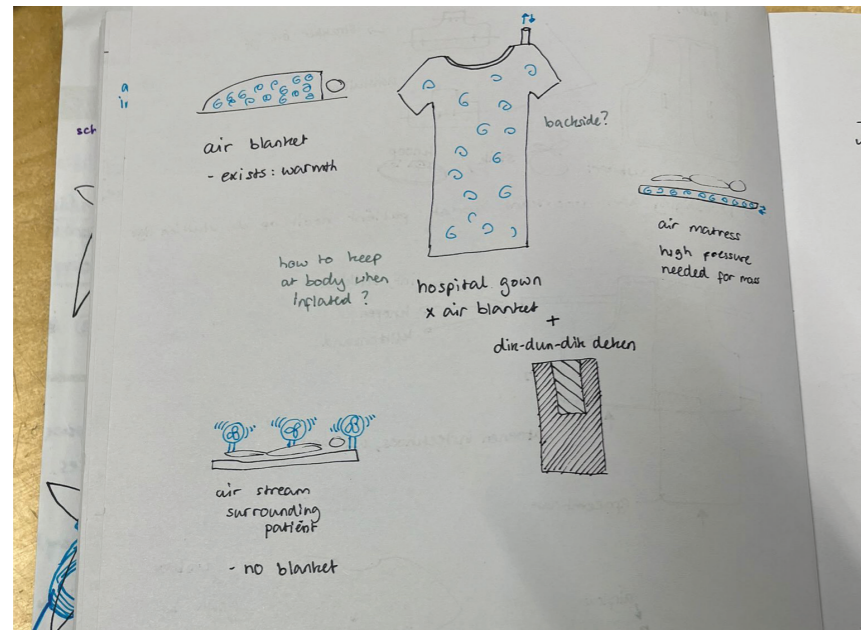 air blanket
- exists: warmth
backside?
how to keep
at body when
inflated?
hospital gown
x air blanket
+
dik-dun-dik deken
air matress
high pressure
needed for mass
air stream
surrounding
patient
- no blanket
sch